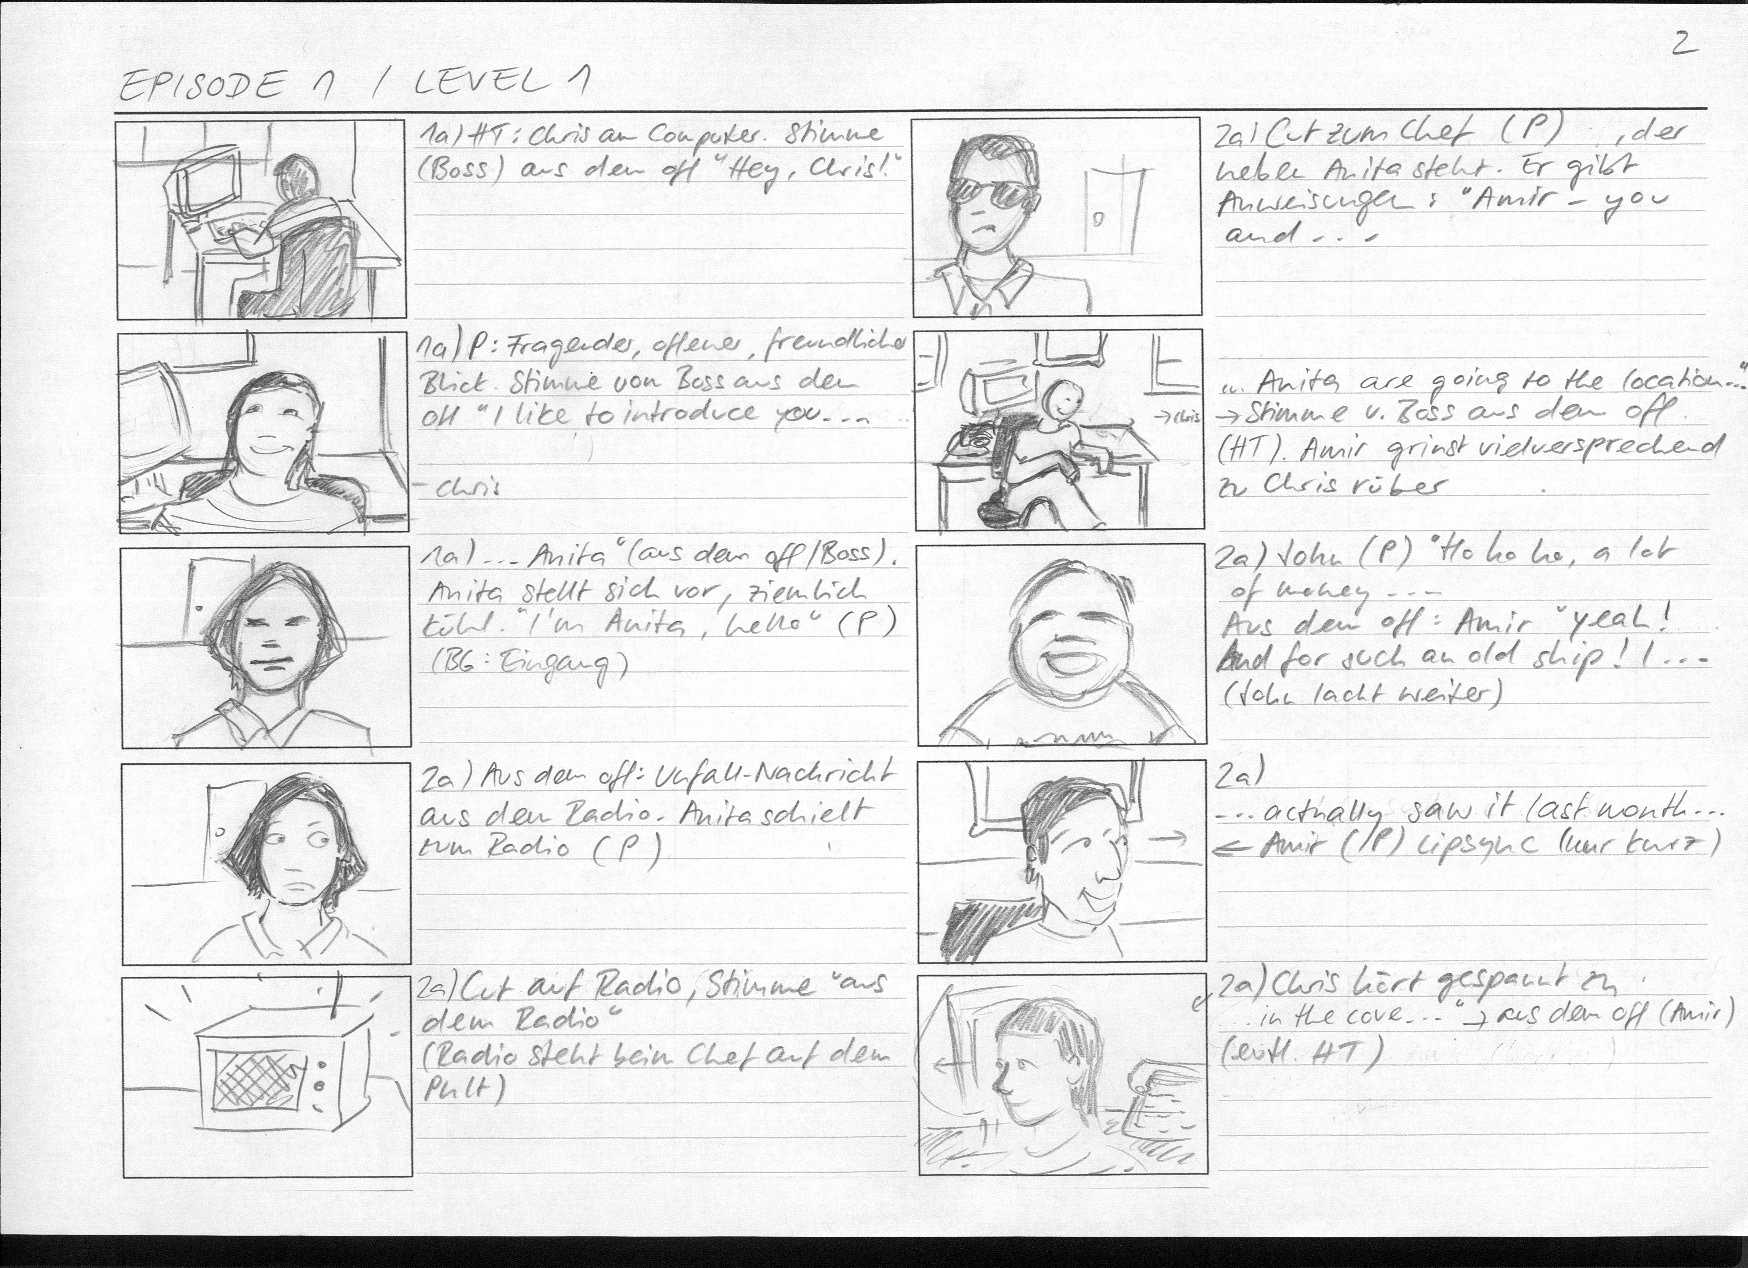 2
EPISODE 1 / LEVEL 1
1a) HT: Chris am Computer. Stimme
(Boss) aus dem off "Hey, Chris!"
1a) P: Fragender, offener, freundlicher
Blick. Stimme von Boss aus dem
off "I like to introduce you...
- Chris
1a) ... Anita" (aus dem off/Boss).
Anita stellt sich vor, ziemlich
kühl. "I'm Anita, hello" (P)
(BG: Eingang)
2a) Aus dem off: Unfall-Nachricht
aus dem Radio. Anita schielt
zum Radio (P)
2a) Cut auf Radio, Stimme "aus
dem Radio"
(Radio steht beim Chef auf dem
Pult)
2a) Cut zum Chef (P) , der
neben Anita steht. Er gibt
Anweisungen: "Amir - you
and...
→ Chris
"... Anita are going to the location..."
→ Stimme v. Boss aus dem off.
(HT). Amir grinst vielversprechend
zu Chris rüber
2a) John (P) "Ho ho ho, a lot
of money ...
Aus dem off: Amir "yeah!
And for such an old ship! I...
(John lacht weiter)
2a)
... actually saw it last month...
← Amir (P) Lipsync (nur kurz)
2a) Chris hört gespannt zu
... in the cove..." → aus dem off (Amir)
(evtl. HT)